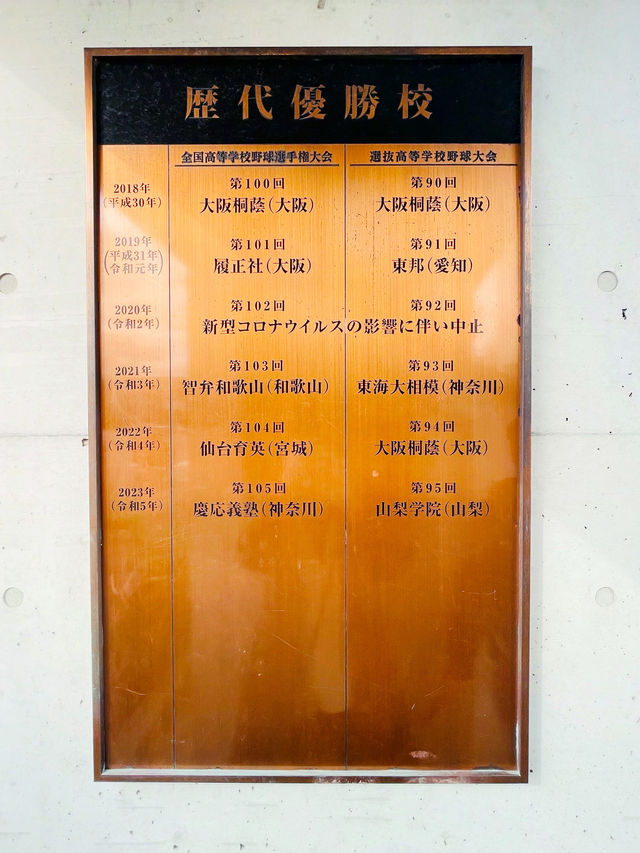 歴代優勝校
全国高等学校野球選手権大会 選抜高等学校野球大会
2018年
(平成30年)
第100回
大阪桐蔭(大阪)
第90回
大阪桐蔭(大阪)
2019年
(平成31年
令和元年)
第101回
履正社(大阪)
第91回
東邦(愛知)
2020年
(令和2年)
第102回 第92回
新型コロナウイルスの影響に伴い中止
2021年
(令和3年)
第103回
智弁和歌山(和歌山)
第93回
東海大相模(神奈川)
2022年
(令和4年)
第104回
仙台育英(宮城)
第94回
大阪桐蔭(大阪)
2023年
(令和5年)
第105回
慶応義塾(神奈川)
第95回
山梨学院(山梨)